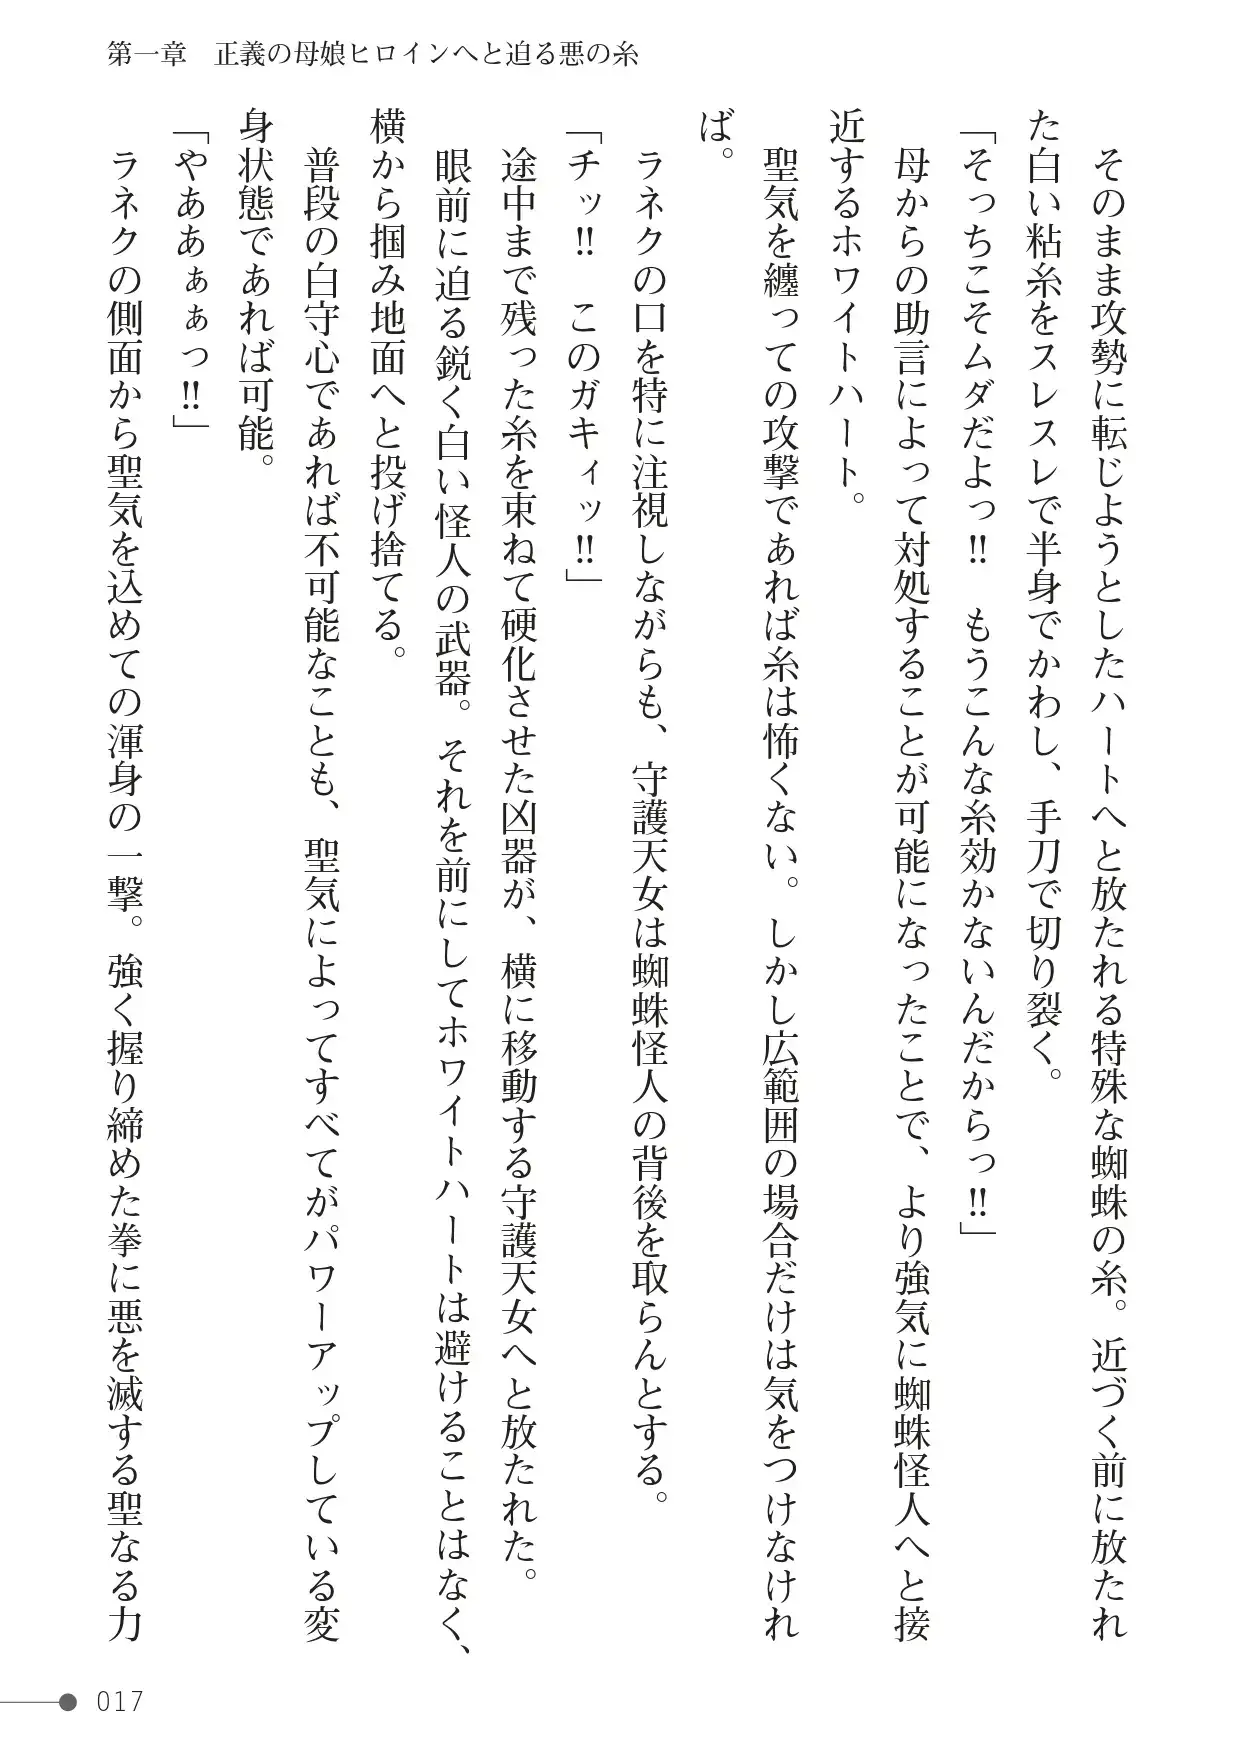 第一章　正義の母娘ヒロインへと迫る悪の糸
　そのまま攻勢に転じようとしたハートへと放たれる特殊な蜘蛛の糸。近づく前に放たれ
た白い粘糸をスレスレで半身でかわし、手刀で切り裂く。
「そっちこそムダだよっ‼　もうこんな糸効かないんだからっ‼」
　母からの助言によって対処することが可能になったことで、より強気に蜘蛛怪人へと接
近するホワイトハート。
　聖気を纏っての攻撃であれば糸は怖くない。しかし広範囲の場合だけは気をつけなけれ
ば。
　ラネクの口を特に注視しながらも、守護天女は蜘蛛怪人の背後を取らんとする。
「チッ‼　このガキィッ‼」
　途中まで残った糸を束ねて硬化させた凶器が、横に移動する守護天女へと放たれた。
　眼前に迫る鋭く白い怪人の武器。それを前にしてホワイトハートは避けることはなく、
横から掴み地面へと投げ捨てる。
　普段の白守心であれば不可能なことも、聖気によってすべてがパワーアップしている変
身状態であれば可能。
「やああぁぁっ‼」
　ラネクの側面から聖気を込めての渾身の一撃。強く握り締めた拳に悪を滅する聖なる力
017